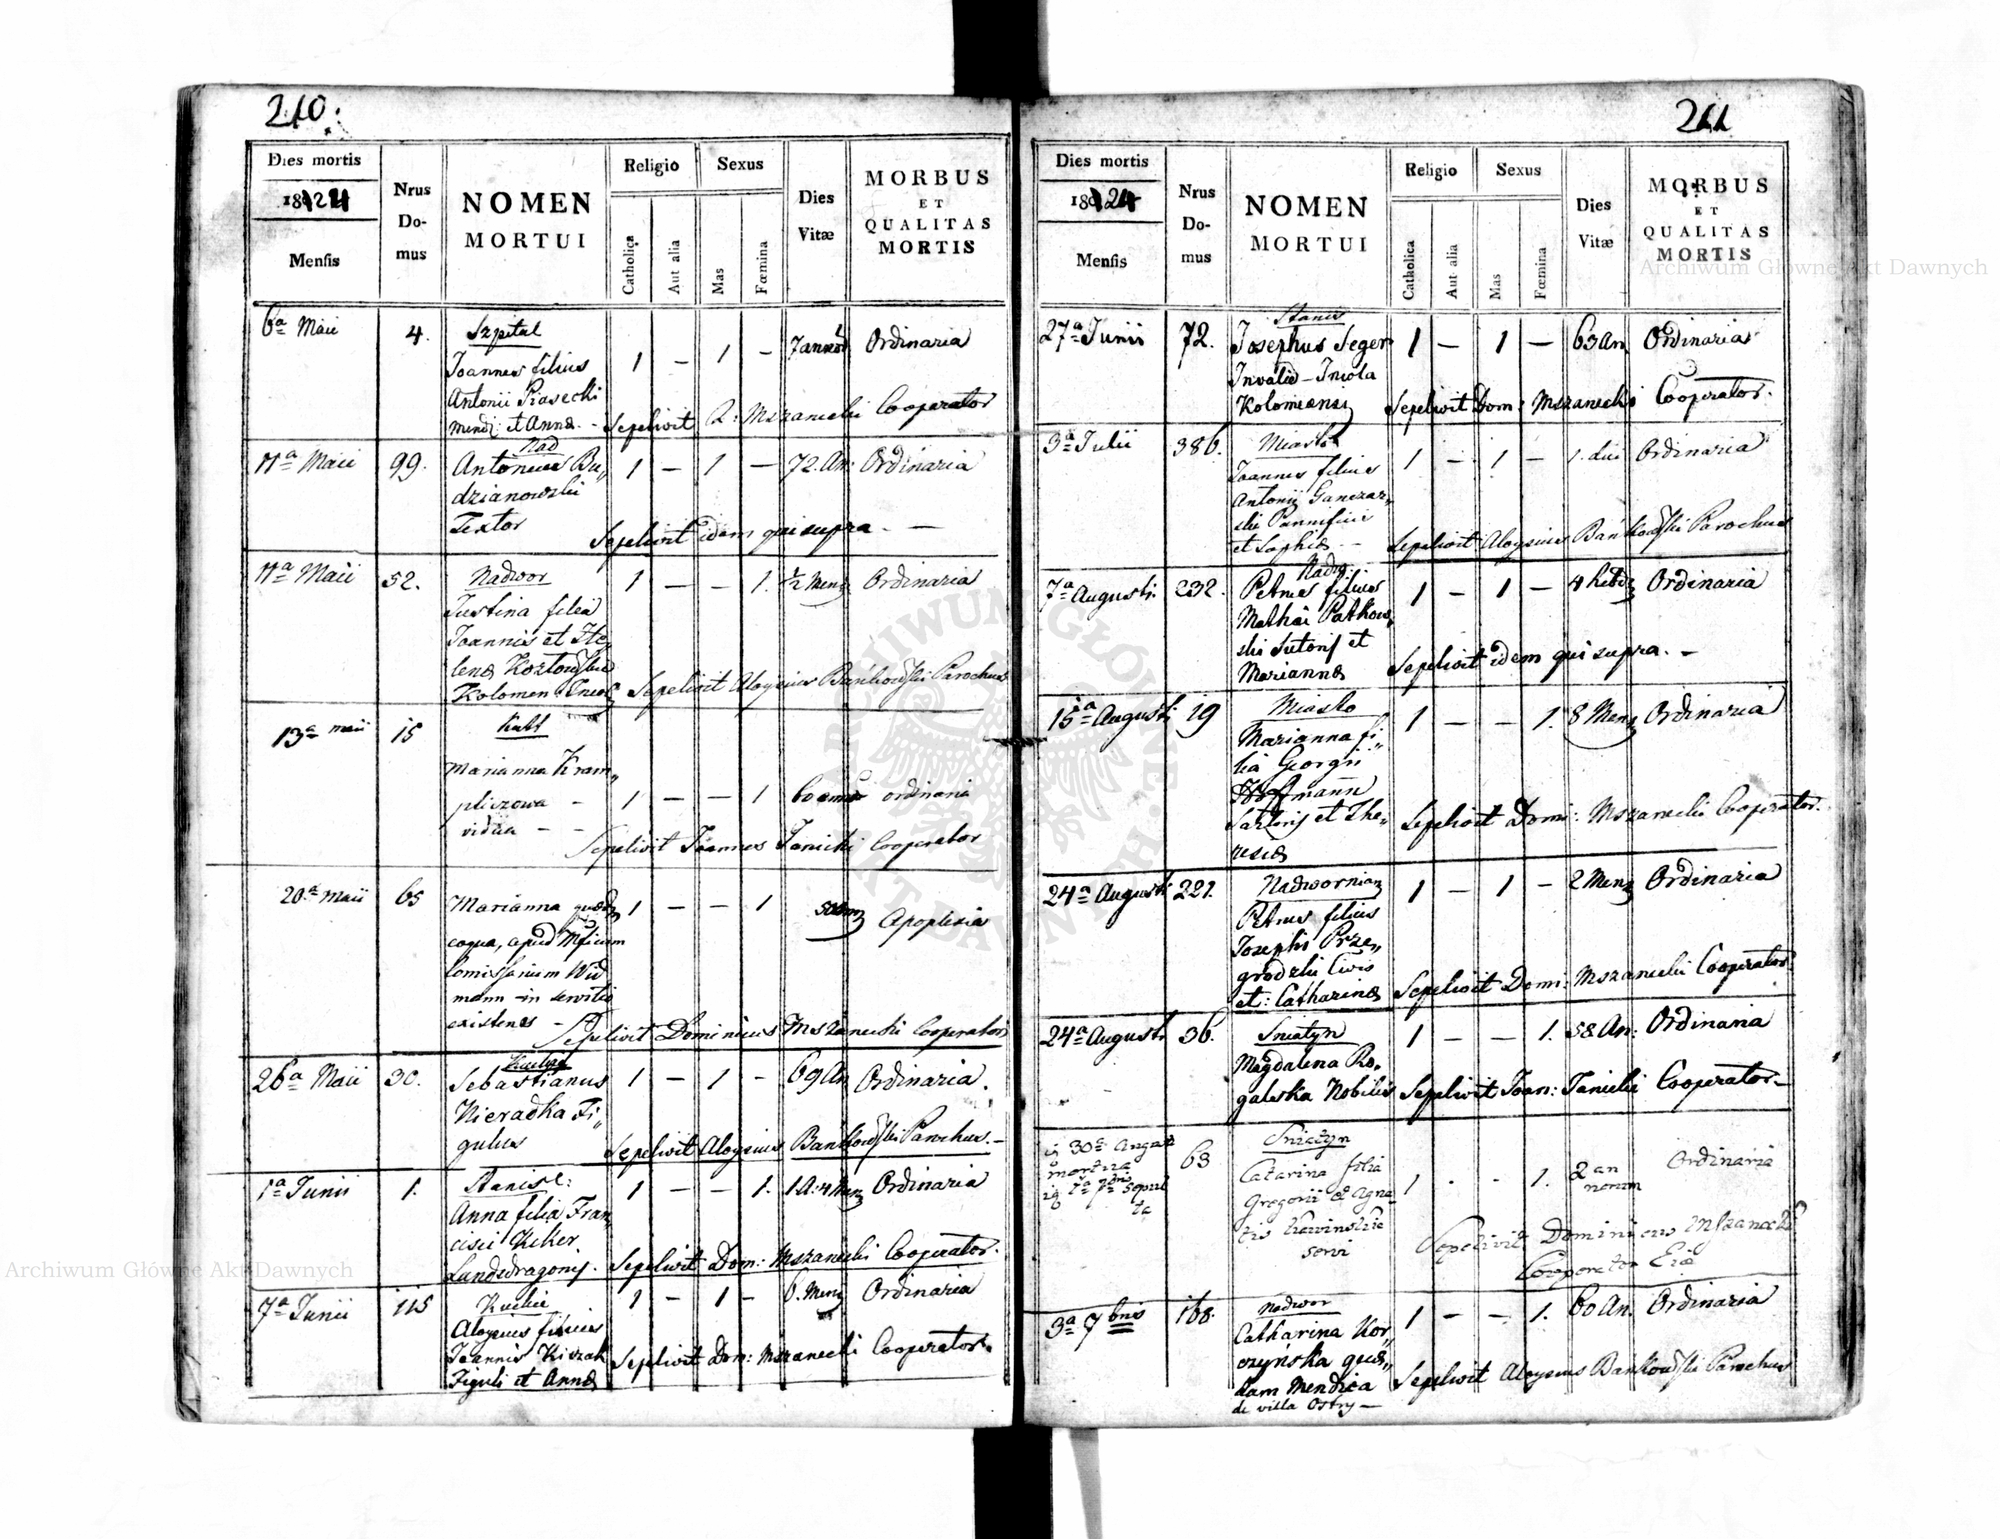 210.
Dies mortis
1824
Mensis
Nrus Domus
NOMEN MORTUI
Religio
Catholica
Aut alia
Sexus
Mas
Fœmina
Dies Vitæ
MORBUS ET QUALITAS MORTIS
6a Maii 4. Szpital 1 – 1 – 7 Ordinaria
Joannes filius
Antonii Piasecki
Mend: et Annæ. – Sepelivit D: Mszanecki Cooperator
11a Maii 99. Nad 1 – 1 – 72. An: Ordinaria
Antonius Bu„
dzianowski
Textor Sepelivit idem qui supra. –
11a Maii 52. Nadwor 1 – – 1. ½ Mens Ordinaria
Justina filia
Joannis et He„
lenæ Kozłowskie
Kolomen Incol Sepelivit Aloysius Bańkowski Parochus
13a Maii 15
Marianna Kram„
pliszowa – 1 – – 1 60 ordinaria
vidua – – Sepelivit Joannes Janicki Cooperator
20a Maii 65 Marianna quædam 1 – – 1 Apoplexia
coqua, apud
Comissarium Wid
mann in servitio
existens – Sepelivit Dominicus Mszanecki Cooperator
26a Maii 30. 1 – 1 – 69 An Ordinaria.
Sebastianus
Nieradka Fi„
gulus Sepelivit Aloysius Bańkowski Parochus. –
1a Junii 1. Stanisl: 1 – – 1. 1 A. 4 Mens Ordinaria
Anna filia Fran„
cisci Kiker
Landsdragonis. Sepelivit Dom: Mszanecki Cooperator.
7a Junii 115 Kuilie 1 – 1 – 6. Mens Ordinaria
Aloysius filius
Joannis Kiszak
Figuli et Annæ Sepelivit Dom: Mszanecki Cooperator.
211
Dies mortis
1824
Mensis
Nrus Domus
NOMEN MORTUI
Religio
Catholica
Aut alia
Sexus
Mas
Fœmina
Dies Vitæ
MORBUS ET QUALITAS MORTIS
27a Junii 72. Stanis 1 – 1 – 63 An Ordinaria
Josephus Seger
Invalid – Incola
Kolomeans Sepelivit Dom: Mszanecki Cooperator.
3a Julii 386. Miasto 1 – 1 – 1. diei Ordinaria
Joannes filius
Antonij Ganczar„
ski Pannificis
et Sophiæ – Sepelivit Aloysius Bańkowski Parochus
7a Augusti 232. Nadw 1 – 1 – 4 hebd Ordinaria
Petrus filius
Mathæi Patkow„
ski Sutoris et
Mariannæ Sepelivit idem qui supra. –
15a Augusti 19 Miasto 1 – – 1. 8 Mens Ordinaria
Marianna fi„
lia Georgii
Hoffmann
Sartoris et The„
resiæ Sepelivit Domi: Mszanecki Cooperator.
24a Augusti 221. Nadwornian 1 – 1 – 2 Mens Ordinaria
Petrus filius
Josephi Prze„
grodzki Civis
et: Catharinæ Sepelivit Domi: Mszanecki Cooperator.
24a Augusti 36. Sniatyn 1 – – 1. 58 An: Ordinaria
Magdalena Ro„
galska Nobilis Sepelivit Joan: Janicki Cooperator –
30a Augusti 63 Sniatyn 1 . – 1. 2 an norum Ordinaria
mortua
7bris sepul
ta
Catarina filia
Gregorii et Agne„
tis
servi Sepelivit Dominicus Mszanecki
Cooperator Eiæ
3a 7bris 168. Nadwor 1 – – 1. 60 An. Ordinaria
Catharina Kor„
czyńska quæ„
dam Mendica
de villa Ostry – Sepelivit Aloysius Bańkowski Parochus
Archiwum Główne Akt Dawnych
Archiwum Główne Akt Dawnych
ARCHIWUM GŁÓWNE AKT DAWNYCH